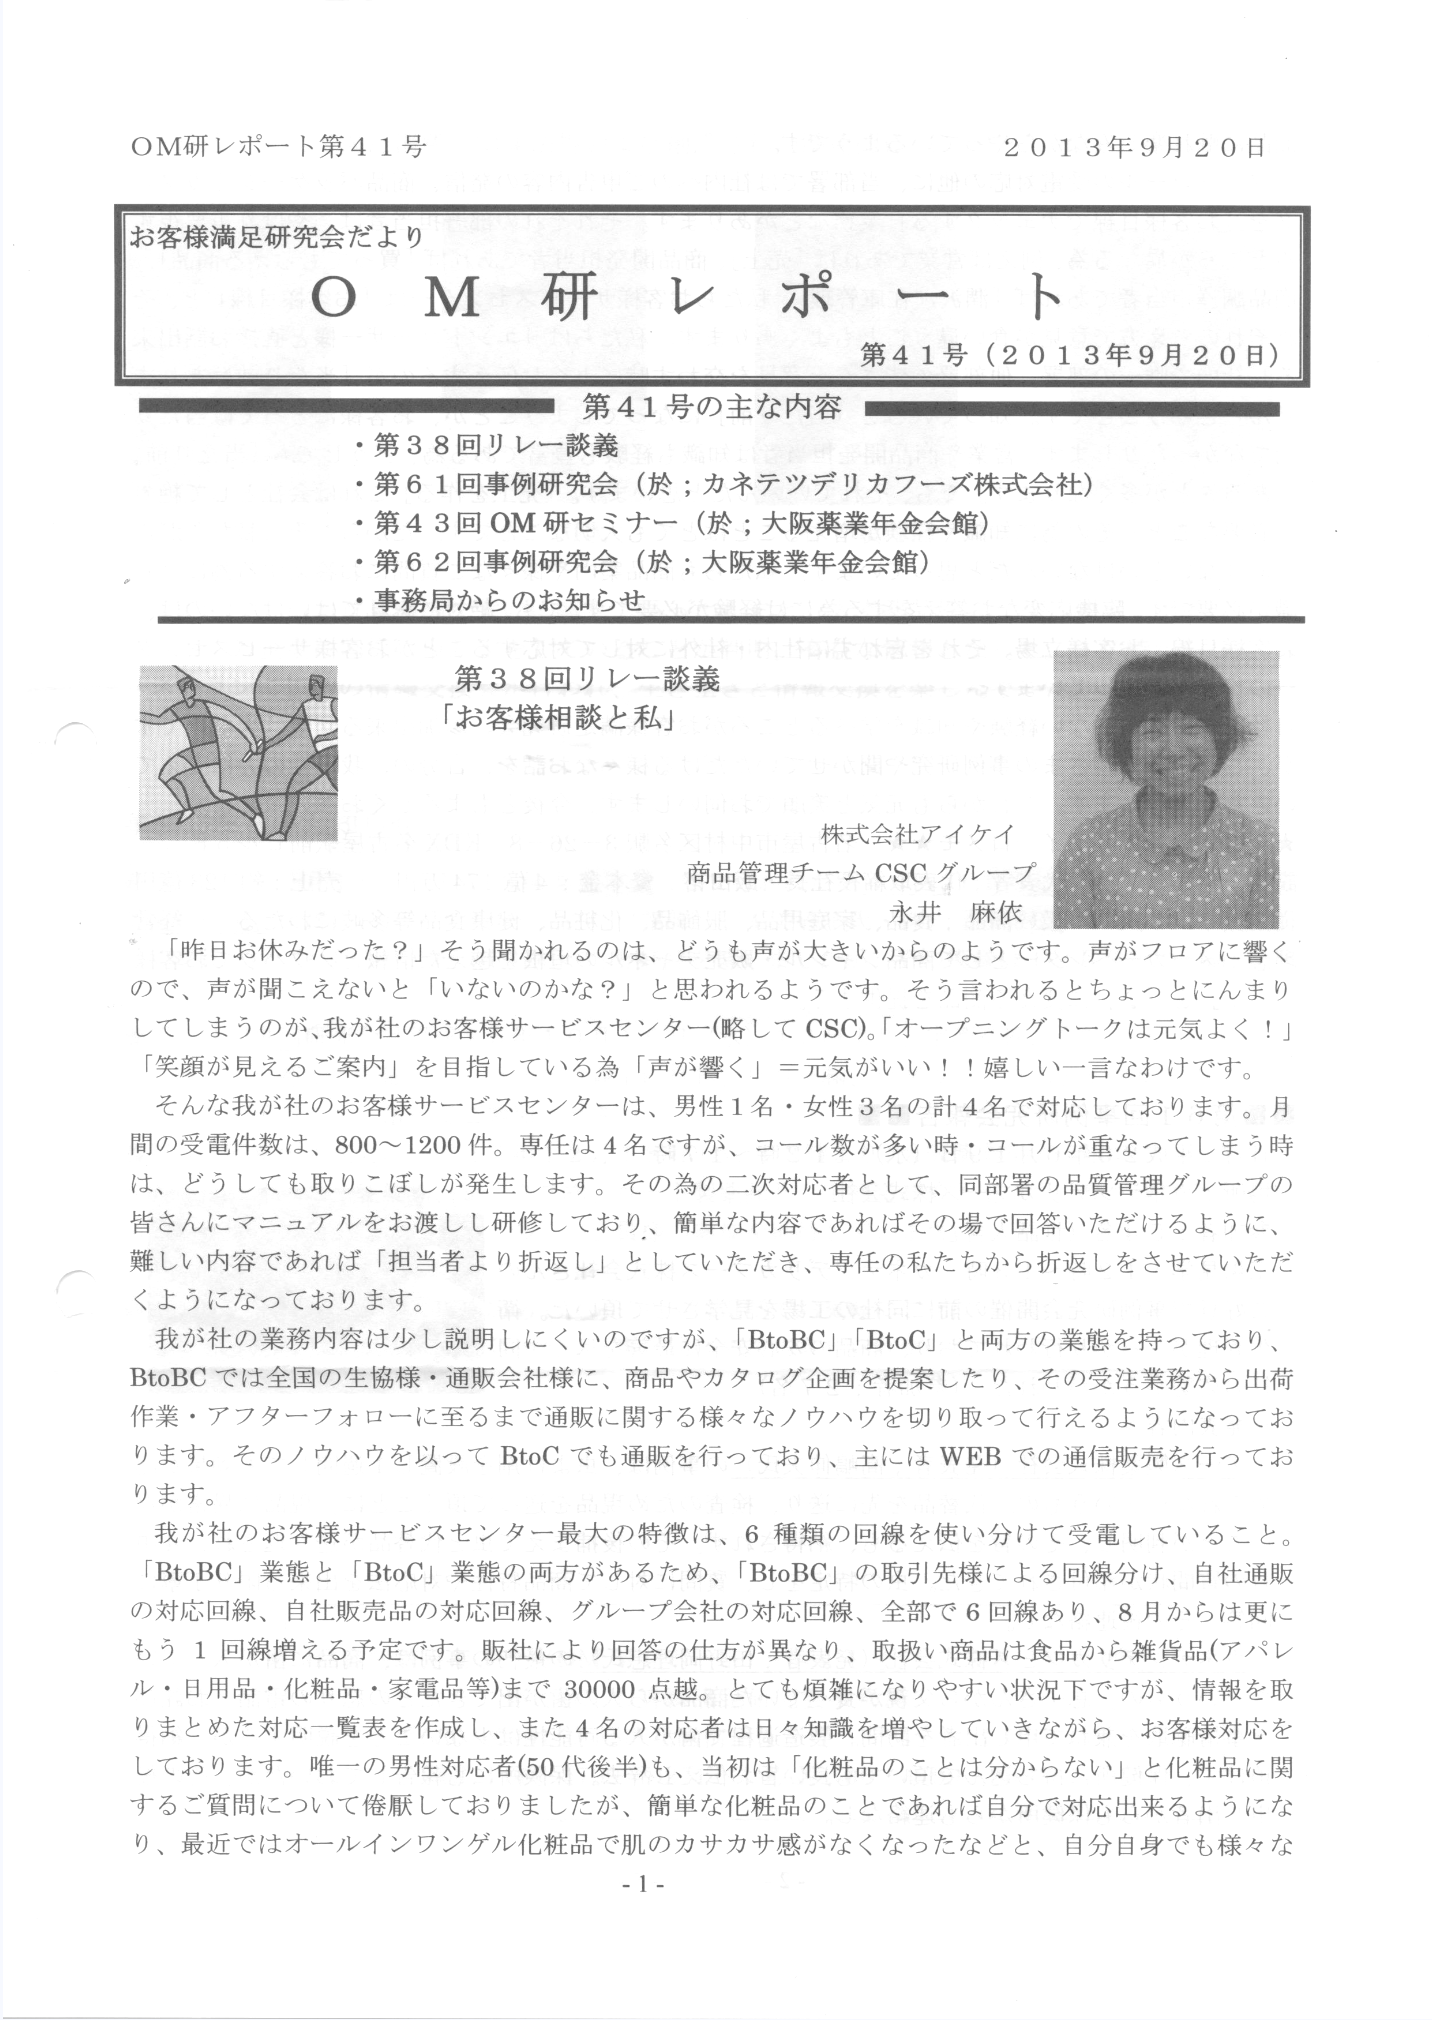 OM研レポート第４１号
２０１３年９月２０日
お客様満足研究会だより
ＯＭ研レポート
第４１号（２０１３年９月２０日）
第４１号の主な内容
・第３８回リレー談義
・第６１回事例研究会（於；カネテツデリカフーズ株式会社）
・第４３回 OM 研セミナー（於；大阪薬業年金会館）
・第６２回事例研究会（於；大阪薬業年金会館）
・事務局からのお知らせ
第３８回リレー談義
「お客様相談と私」
株式会社アイケイ
商品管理チーム CSC グループ
永井　麻依
「昨日お休みだった？」そう聞かれるのは、どうも声が大きいからのようです。声がフロアに響く
ので、声が聞こえないと「いないのかな？」と思われるようです。そう言われるとちょっとにんまり
してしまうのが、我が社のお客様サービスセンター(略して CSC)。「オープニングトークは元気よく！」
「笑顔が見えるご案内」を目指している為「声が響く」＝元気がいい！！嬉しい一言なわけです。
そんな我が社のお客様サービスセンターは、男性１名・女性３名の計４名で対応しております。月
間の受電件数は、800～1200 件。専任は 4 名ですが、コール数が多い時・コールが重なってしまう時
は、どうしても取りこぼしが発生します。その為の二次対応者として、同部署の品質管理グループの
皆さんにマニュアルをお渡しし研修しており、簡単な内容であればその場で回答いただけるように、
難しい内容であれば「担当者より折返し」としていただき、専任の私たちから折返しをさせていただ
くようになっております。
我が社の業務内容は少し説明しにくいのですが、「BtoBC」「BtoC」と両方の業態を持っており、
BtoBC では全国の生協様・通販会社様に、商品やカタログ企画を提案したり、その受注業務から出荷
作業・アフターフォローに至るまで通販に関する様々なノウハウを切り取って行えるようになってお
ります。そのノウハウを以って BtoC でも通販を行っており、主には WEB での通信販売を行ってお
ります。
我が社のお客様サービスセンター最大の特徴は、6 種類の回線を使い分けて受電していること。
「BtoBC」業態と「BtoC」業態の両方があるため、「BtoBC」の取引先様による回線分け、自社通販
の対応回線、自社販売品の対応回線、グループ会社の対応回線、全部で 6 回線あり、8 月からは更に
もう 1 回線増える予定です。販社により回答の仕方が異なり、取扱い商品は食品から雑貨品(アパレ
ル・日用品・化粧品・家電品等)まで 30000 点越。とても煩雑になりやすい状況下ですが、情報を取
りまとめた対応一覧表を作成し、また 4 名の対応者は日々知識を増やしていきながら、お客様対応を
しております。唯一の男性対応者(50 代後半)も、当初は「化粧品のことは分からない」と化粧品に関
するご質問について倦厭しておりましたが、簡単な化粧品のことであれば自分で対応出来るようにな
り、最近ではオールインワンゲル化粧品で肌のカサカサ感がなくなったなどと、自分自身でも様々な
- 1 -